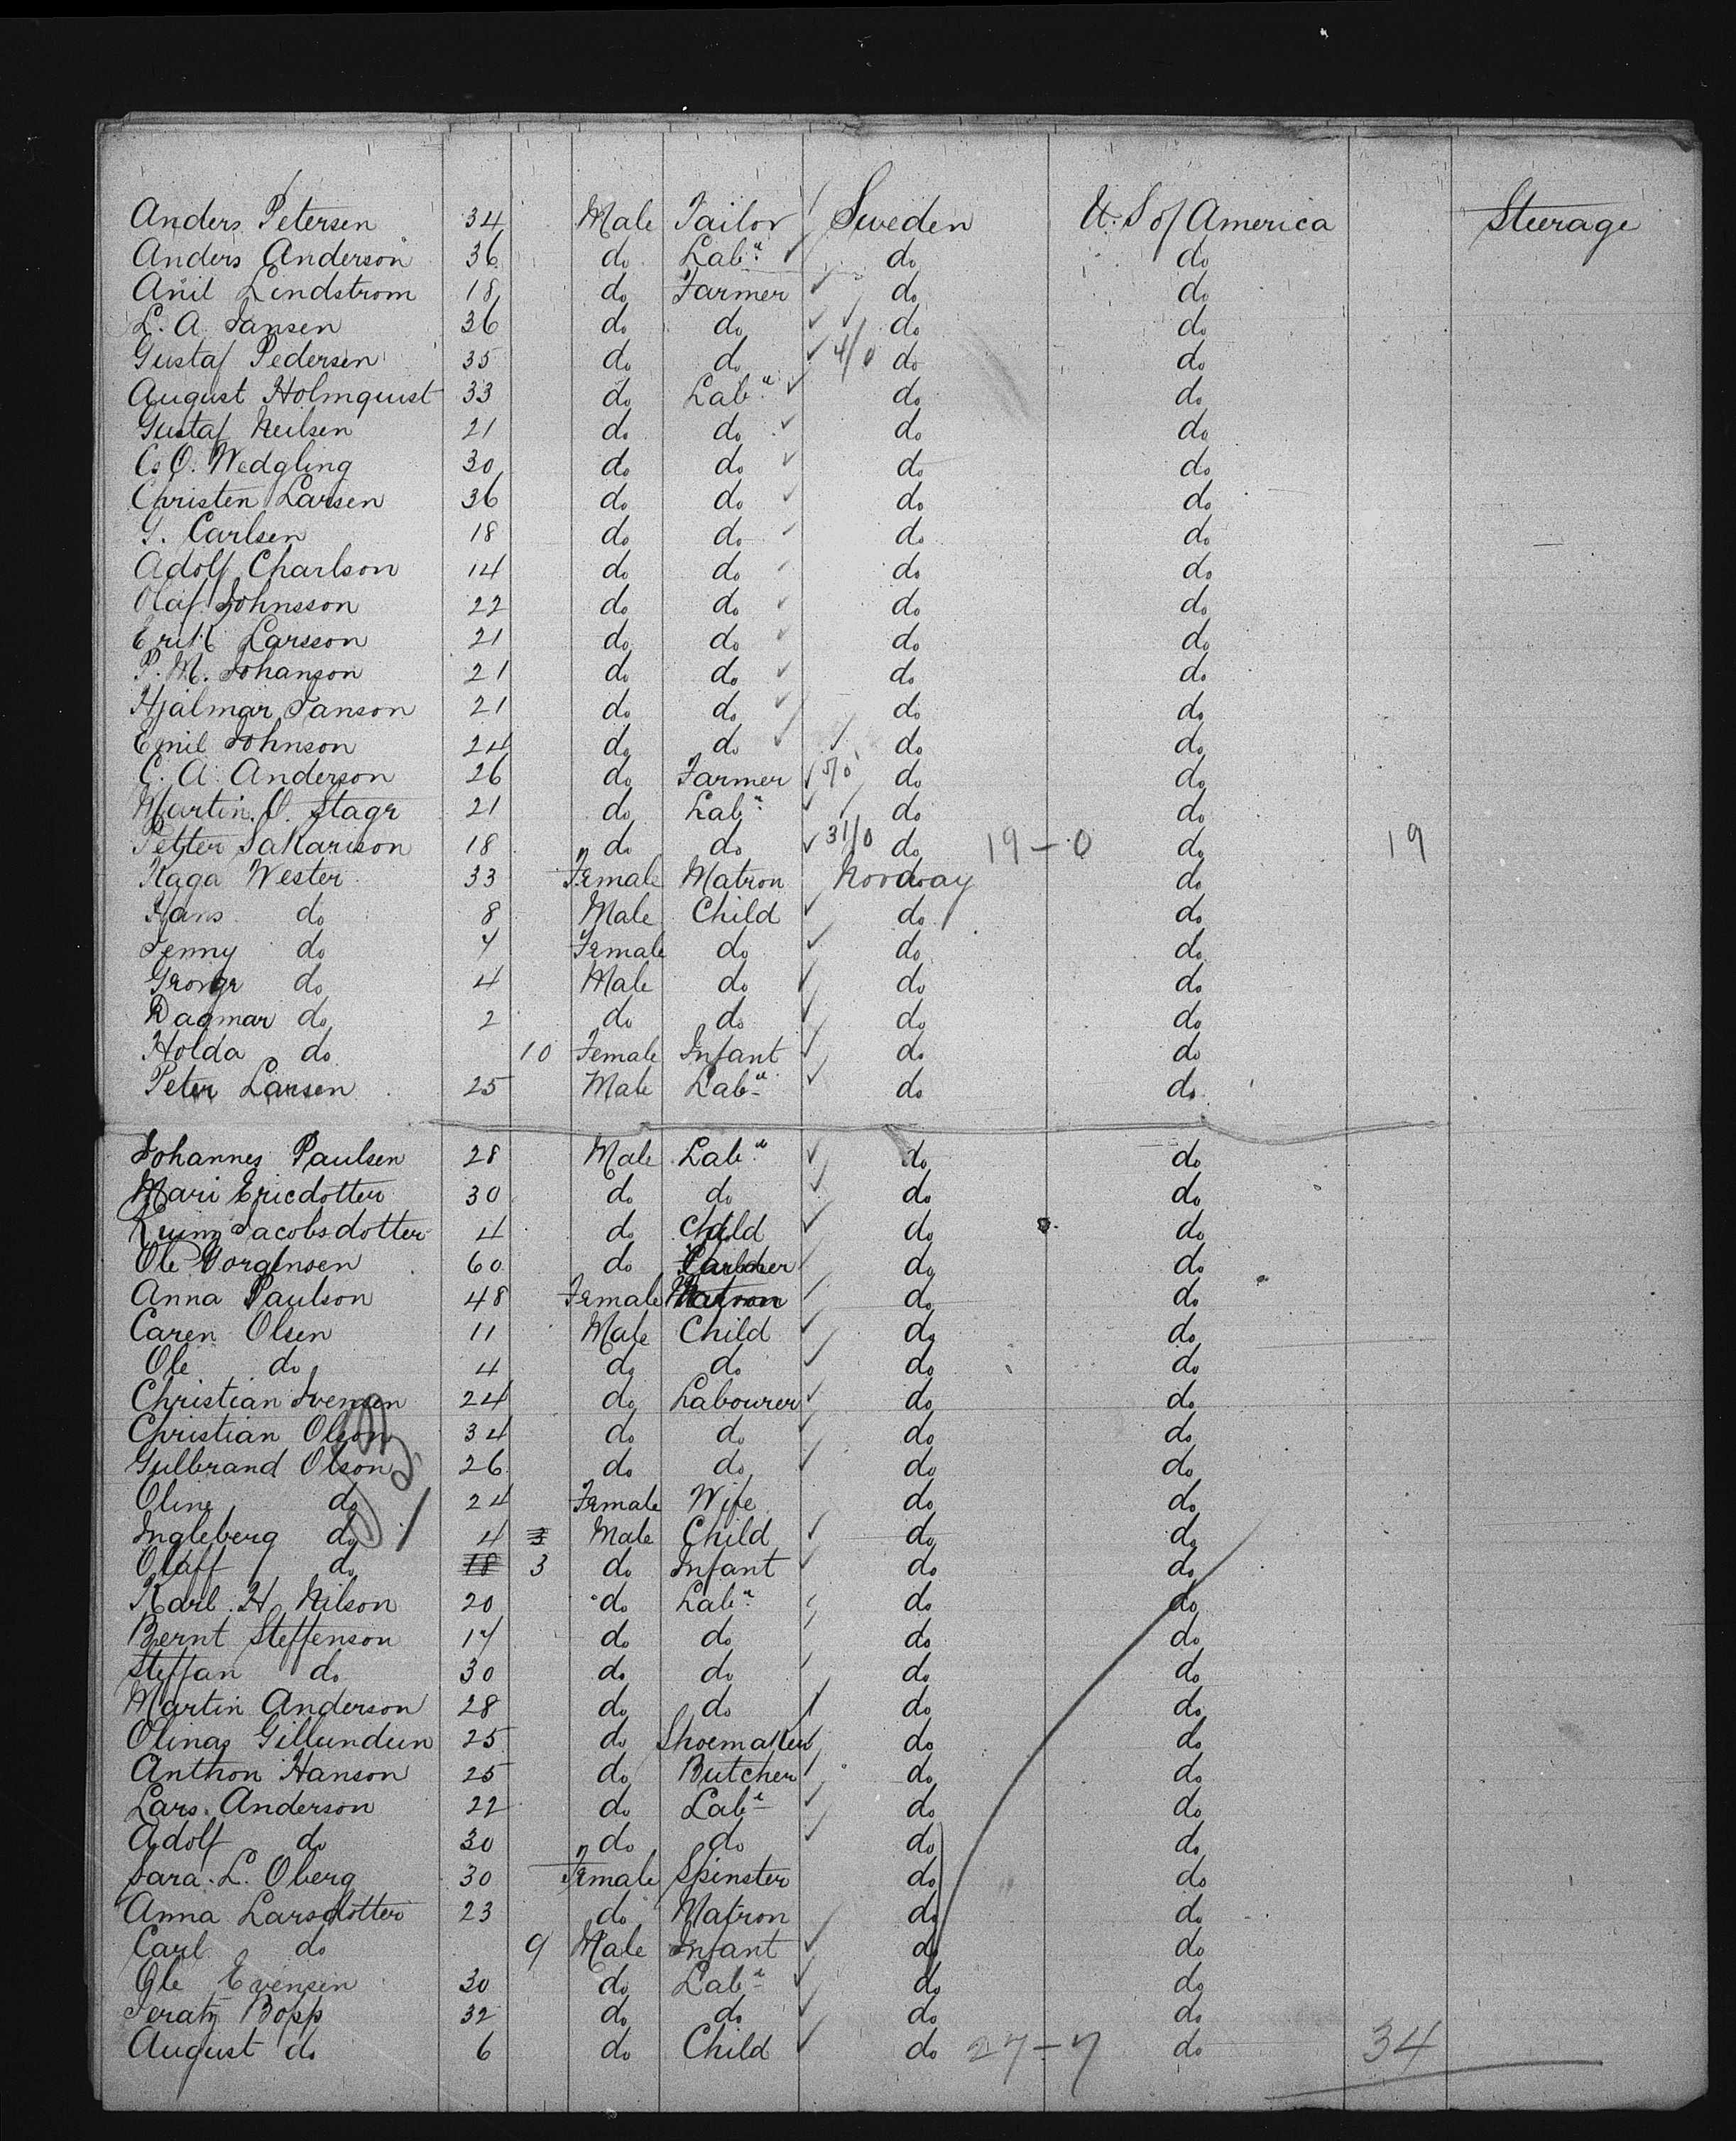 Anders Petersen 34 Male Tailor Sweden U. S of America Steerage
Anders Anderson 36 do Labr do do
Anil Lindstrom 18 do Farmer do do
L. A. Jansen 36 do do do do
Gustaf Pedersen 35 do do 4/0 do do
August Holmquist 33 do Labr do do
Gustaf Neilsen 21 do do do do
C. O. Wedgling 30 do do do do
Christen Larsen 36 do do do do
G. Carlsen 18 do do do do
Adolf Charlson 14 do do do do
Olaf Johnsson 22 do do do do
Erik Larsson 21 do do do do
P. M. Johanson 21 do do do do
Hjalmar Janson 21 do do do do
Emil Johnson 24 do do do do
C. A. Anderson 26 do Farmer do do
Martin. O. Stagr 21 do Labr do do
Petter Sakarison 18 do do 31/0 do 19 - 0 do 19
Kaga Wester 33 Female Matron Norway do
Hans do 8 Male Child do do
Jenny do 7 Female do do do
George do 4 Male do do do
Dagmar do 2 do do do do
Holda do 10 Female Infant do do
Peter Larsen 25 Male Labr do do
Johannes Paulsen 28 Male Labr do do
Mari Ericdotter 30 do do do do
Jacobsdotter 4 do Child do do
Ole Jorgensen 60 do do do
Anna Paulson 48 Female Matron do do
Caren Olsen 11 Male Child do do
Ole do 4 do do do do
Christian Ivensen 24 do Labourer do do
Christian Olson 34 do do do do
Gulbrand Olson 26 do do do do
Oline do 24 Female Wife do do
Ingleberg do 4 3 Male Child do do
Olaff do 18 3 do Infant do do
Karl. H. Nilson 20 do Labr do do
Bernt Steffenson 17 do do do do
Steffan do 30 do do do do
Martin Anderson 28 do do do do
Olinas Gillundun 25 do Shoemaker do do
Anthon Hanson 25 do Butcher do do
Lars. Anderson 22 do Labr do do
Adolf do 30 do do do do
Sara. L. Oberg 30 Female Spinster do do
Anna Larsdotter 23 do Matron do do
Carl do 9 Male Infant do do
Ole Evensen 30 do Labr do do
Bopp 32 do do do do
August do 6 do Child do 27 - 7 do 34